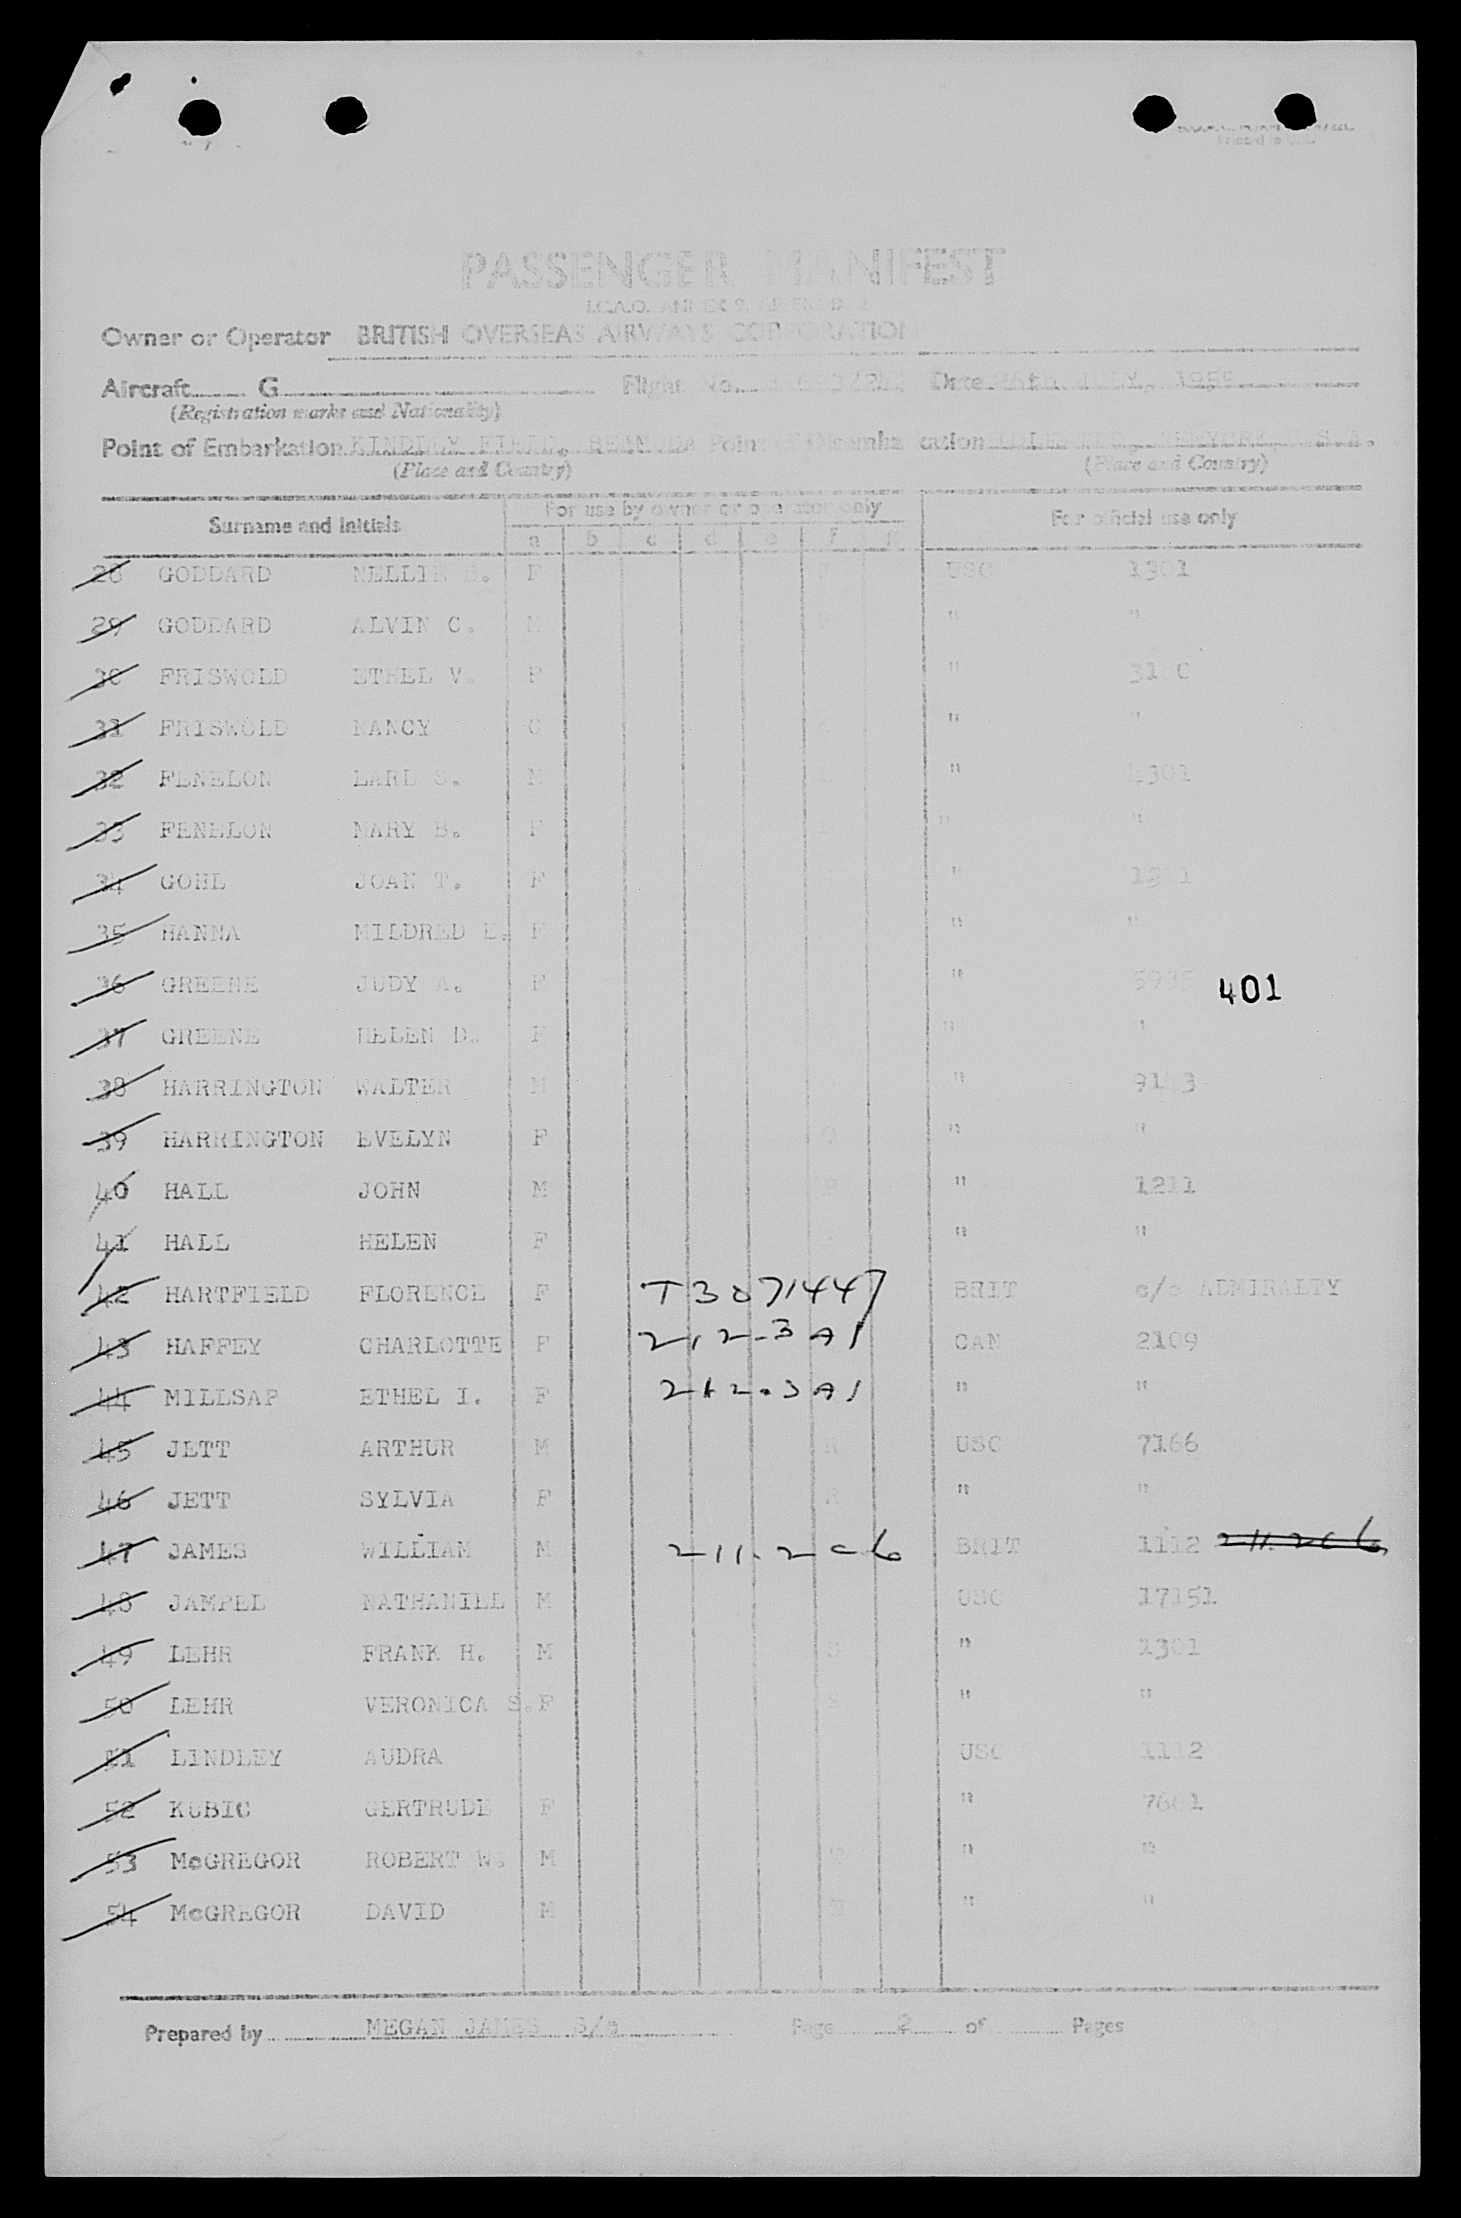 PASSENGER MANIFEST
I.C.A.O. ANNEX 9,
Owner or Operator BRITISH OVERSEAS AIRWAYS CORPORATION
Aircraft G Flight No. Date JULY, 195
(Registration marks and Nationality)
Point of Embarkation KINDLEY FIELD, BERMUDA Point of Disembarkation U.S.A.
(Place and Country) (Place and Country)
Surname and Initials For use by owner or operator only For official use only
a b c d e f g
28 GODDARD NELLIE F USC 1301
29 GODDARD ALVIN C. M " "
30 FRISWOLD ETHEL V. F "
31 FRISWOLD NANCY C " "
32 FENELON EARL S. M " 4301
33 FENELON MARY B. F " "
34 GOHL JOAN T. F "
35 HANNA MILDRED E. F " "
36 GREENE JUDY A. F " 401
37 GREENE HELEN D. F " "
38 HARRINGTON WALTER M "
39 HARRINGTON EVELYN F " "
40 HALL JOHN M " 1211
41 HALL HELEN F " "
42 HARTFIELD FLORENCE F T3071447 BRIT c/o ADMIRALTY
43 HAFFEY CHARLOTTE F 212-3 A1 CAN 2109
44 MILLSAP ETHEL I. F 212.3 A1 " "
45 JETT ARTHUR M R USC 7166
46 JETT SYLVIA F R " "
47 JAMES WILLIAM M 211.2 C6 BRIT 1112 211.2C6
48 JAMPEL NATHANIEL M USC 17151
49 LEHR FRANK H. M S " 1301
50 LEHR VERONICA S. F S " "
51 LINDLEY AUDRA USC 1112
52 KUBIC GERTRUDE F " 7601
53 McGREGOR ROBERT W. M " "
54 McGREGOR DAVID M " "
Prepared by MEGAN JAMES S/a Page 2 of Pages